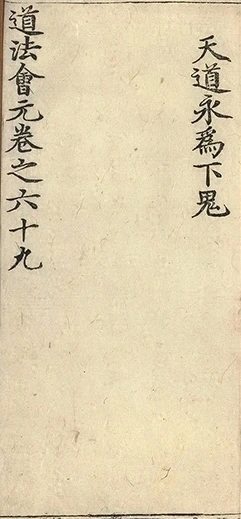 天道永爲下鬼
道法會元卷之六十九